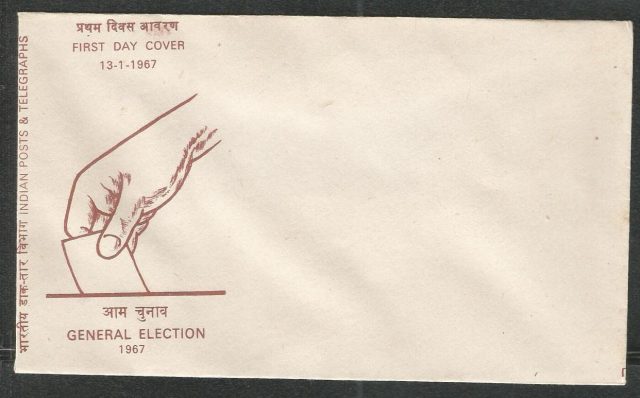 प्रथम दिवस आवरण
FIRST DAY COVER
13-1-1967
भारतीय डाक-तार विभाग INDIAN POSTS & TELEGRAPHS
आम चुनाव
GENERAL ELECTION
1967